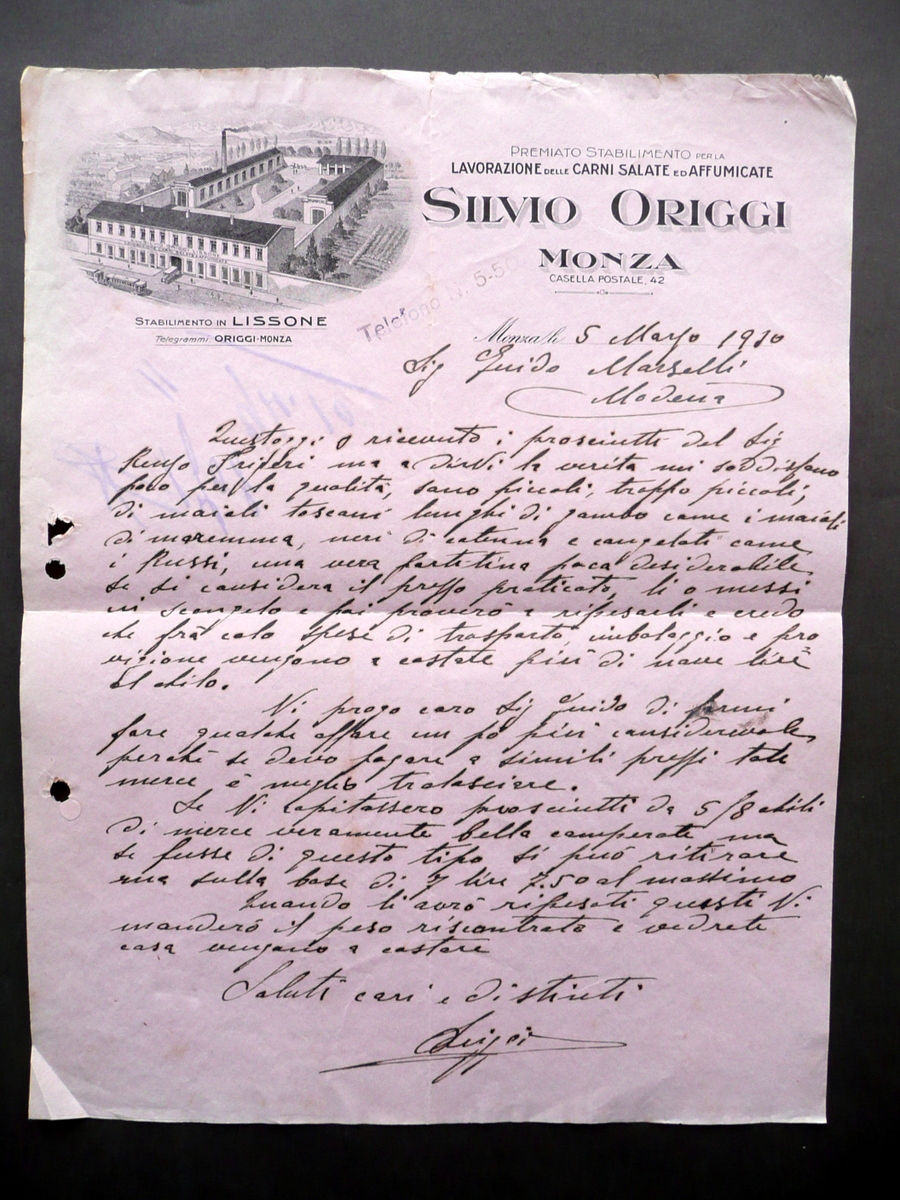 PREMIATO STABILIMENTO PER LA
LAVORAZIONE DELLE CARNI SALATE ED AFFUMICATE
SILVIO ORIGGI
MONZA
CASELLA POSTALE, 42
STABILIMENTO IN LISSONE
Telegrammi ORIGGI-MONZA
Telefono N. 5-50
Monza li 5 Marzo 1930
Sig Guido Marselli
Modena
Quest'oggi o ricevuto i prosciutti del Sig
Renzo ma a dirvi la verita mi soddisfano
poco per la qualità, sono piccoli, troppo piccoli,
di maiali toscani lunghi di gambo come i maiali
di maremma, neri di cotenna e congelati come
i Russi, una vera partitina poca desiderabile,
se si considera il prezzo praticato, li o messi
in scongelo e poi proverò a ripesarli e credo
che frà calo spese di trasporto imbalaggio e pro
vigione vengono a costare più di nove lire
al chilo.
Vi prego caro Sig Guido di farmi
fare qualche affare un pò più considerevole,
perchè se devo pagare a simili prezzi tale
merce è meglio tralasciare.
Se Vi capitassero prosciutti da 5/8 chili
di merce veramente bella comperate ma
se fusse di questo tipo si può ritirare
ma sulla base di 7 lire 7.50 al massimo
Quando li avrò ripesati questi Vi
manderò il peso riscontrato e vedrete
cosa vengano a costare
Saluti cari e distinti
Origgi